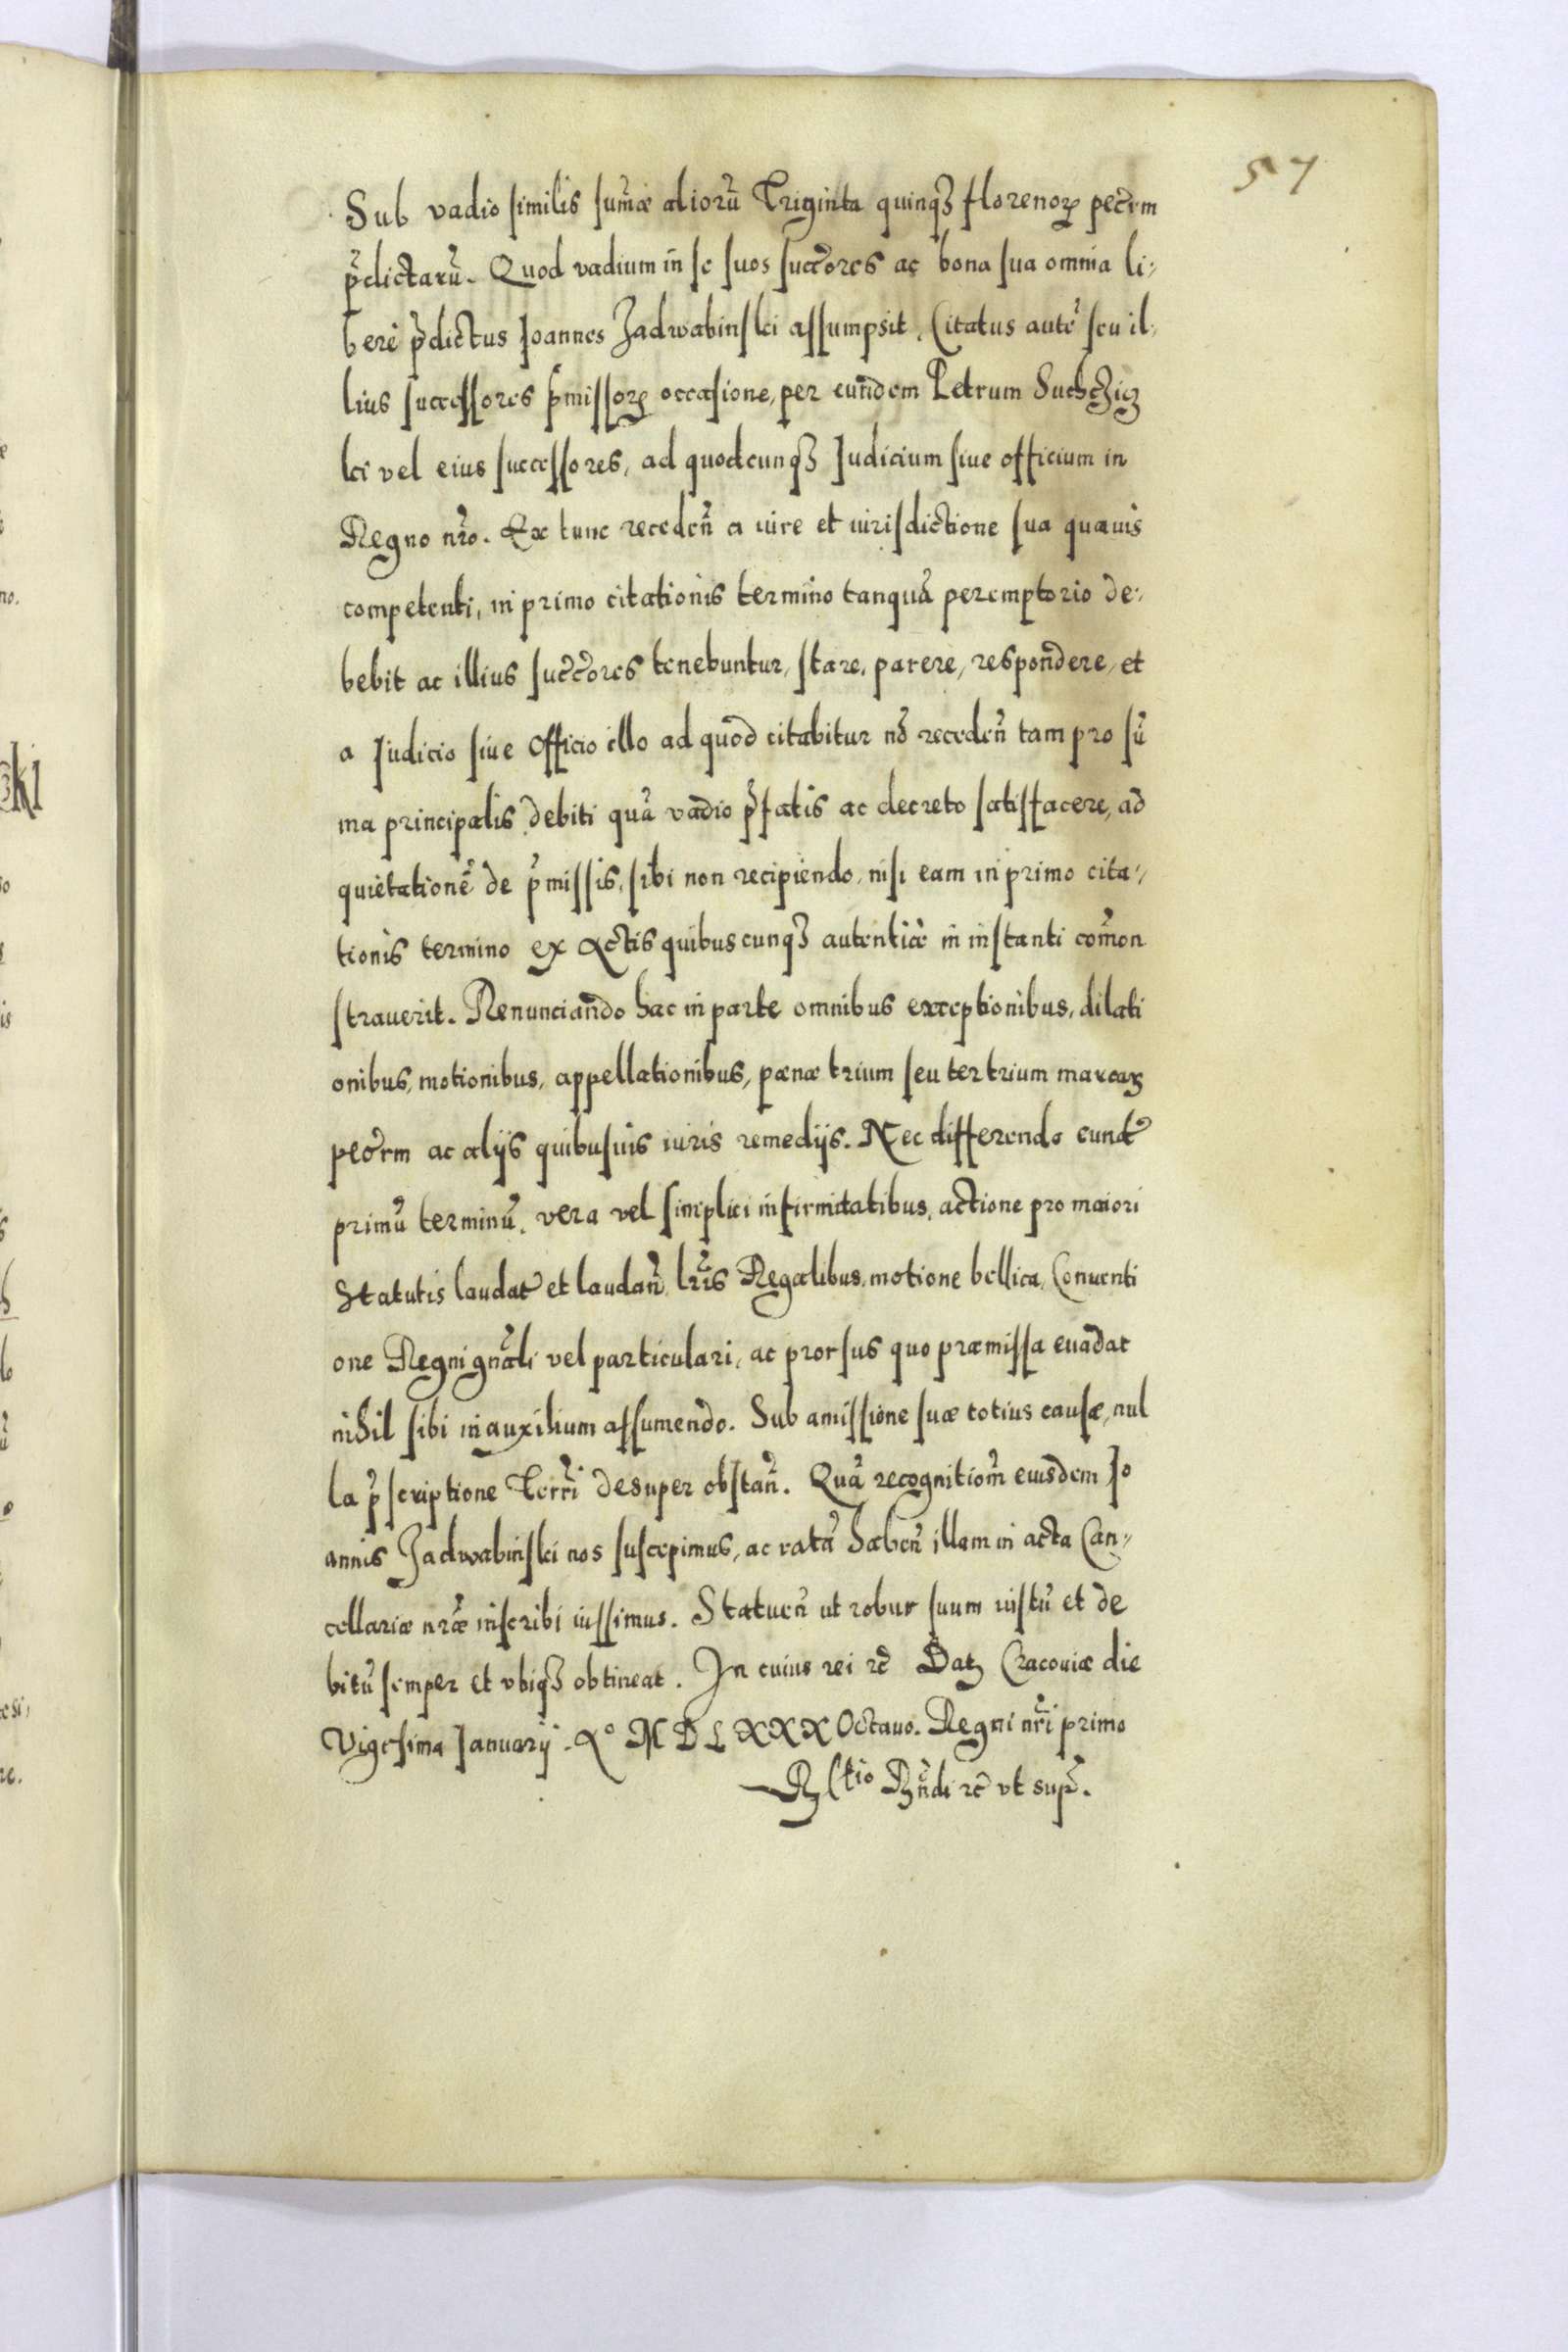 57
Sub vadio similis sum̃æ aliorũ Triginta quinqꝫ florenoꝝ pec̃rm
p̃dictarũ. Quod vadium in se suos succ̃ores ac bona sua omnia li-
berè p̃dictus Joannes Jadwabinski assumpsit. Citatus autẽ seu il-
lius successores p̃missoꝝ occasione, per eundem Petrum Suchcʒic
ki vel eius successores, ad quodcunqꝫ Judicium siue officium in
Regno nr̃o. Ex tunc recedeñ a iure et iurisdictione sua quauis
competenti, in primo citationis termino tanquã peremptorio de-
bebit ac illius succ̃ores tenebuntur, stare, parere, respondere, et
a Judicio siue Officio illo ad quod citabitur nõ recedeñ tam pro sũ
ma principalis debiti quã vadio p̃fatis ac decreto satisfacere, ad
quietationẽ de p̃missis, sibi non recipiendo, nisi eam in primo cita-
tionis termino ex Actis quibuscunqꝫ autenticè in instanti com̃on
strauerit. Renunciando hac in parte omnibus exceptionibus, dilati
onibus, motionibus, appellationibus, pænæ trium seu ter trium marcaꝝ
pec̃rm ac alijs quibusuis iuris remedijs. Nec differendo eundẽ
primũ terminũ, vera vel simplici infirmitatibus, actione pro maiori
Statutis laudat̃ et laudañ, lr̃is Regalibus, motione bellica, Conuenti
one Regni gnãli vel particulari, ac prorsus quo præmissa euadat
nihil sibi in auxilium assumendo. Sub amissione suæ totius causæ, nul
la p̃scriptione Terrĩ desuper obstañ. Quã recognitiom̃ eiusdem Jo
annis Jadwabinski nos suscepimus, ac ratã habeñ illam in acta Can-
cellariæ nr̃æ inscribi iussimus. Statueñ ut robur suum iustũ et de
bitũ semper et vbiqꝫ obtineat. In cuius rei rc̃ Datꝫ Cracouiæ die
Vigesima Januarij. A° M D L XXX Octauo. Regni nr̃i primo
Rltio Rṇ̃di rc̃ vt sup̃.